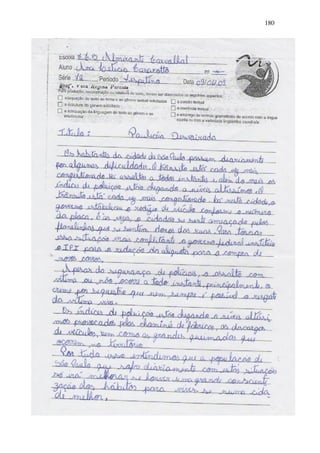 180
Escola E.E.O Almirante Carvalhal
Aluno Ana Leticia Camarotto nº
Série 1ª Período Vespertino Data 09/04/08
Profª. Vera Regina
Título: Paulicéia Desvairada
Os habitantes da cidade de São Paulo passam diariamente
por algumas dificuldades. O trânsito está cada vez mais
congestionado os assaltos a todo instante e além do mais os
índice de poluição estão chegando a níveis altíssimos. O
trânsito está cada vez mais congestionado. Só nesta cidade o
governo estabelece o rodízio de veículo conforme o número
da placa, e às vezes, o cidadão se sente ameaçado pelos
flanelinhas que se sentem donos das ruas. Para tornar
essa situação mais conflitante o governo federal instituiu
o IPI para a redução da alíquota para a compra de
novos carros.
Apesar da segurança de policiais, o assalto com
vítima ou não, ocorre a todo instante, principalmente, o
crime por sequestro que nem sempre é possível o resgate
da vítima viva.
Os índices de poluição estão chegando a níveis altíssi
mos provocados pelas chaminé de fábrica, as descargas
de veículos, bem como as grandes queimadas que
ocorrem no território
Por tudo isso entendemos que a população de
São Paulo que sofre diariamente com estas situações
só irá melhorar se houver uma grande conscienti
zação dos hábitos para viver se numa cida
de melhor.